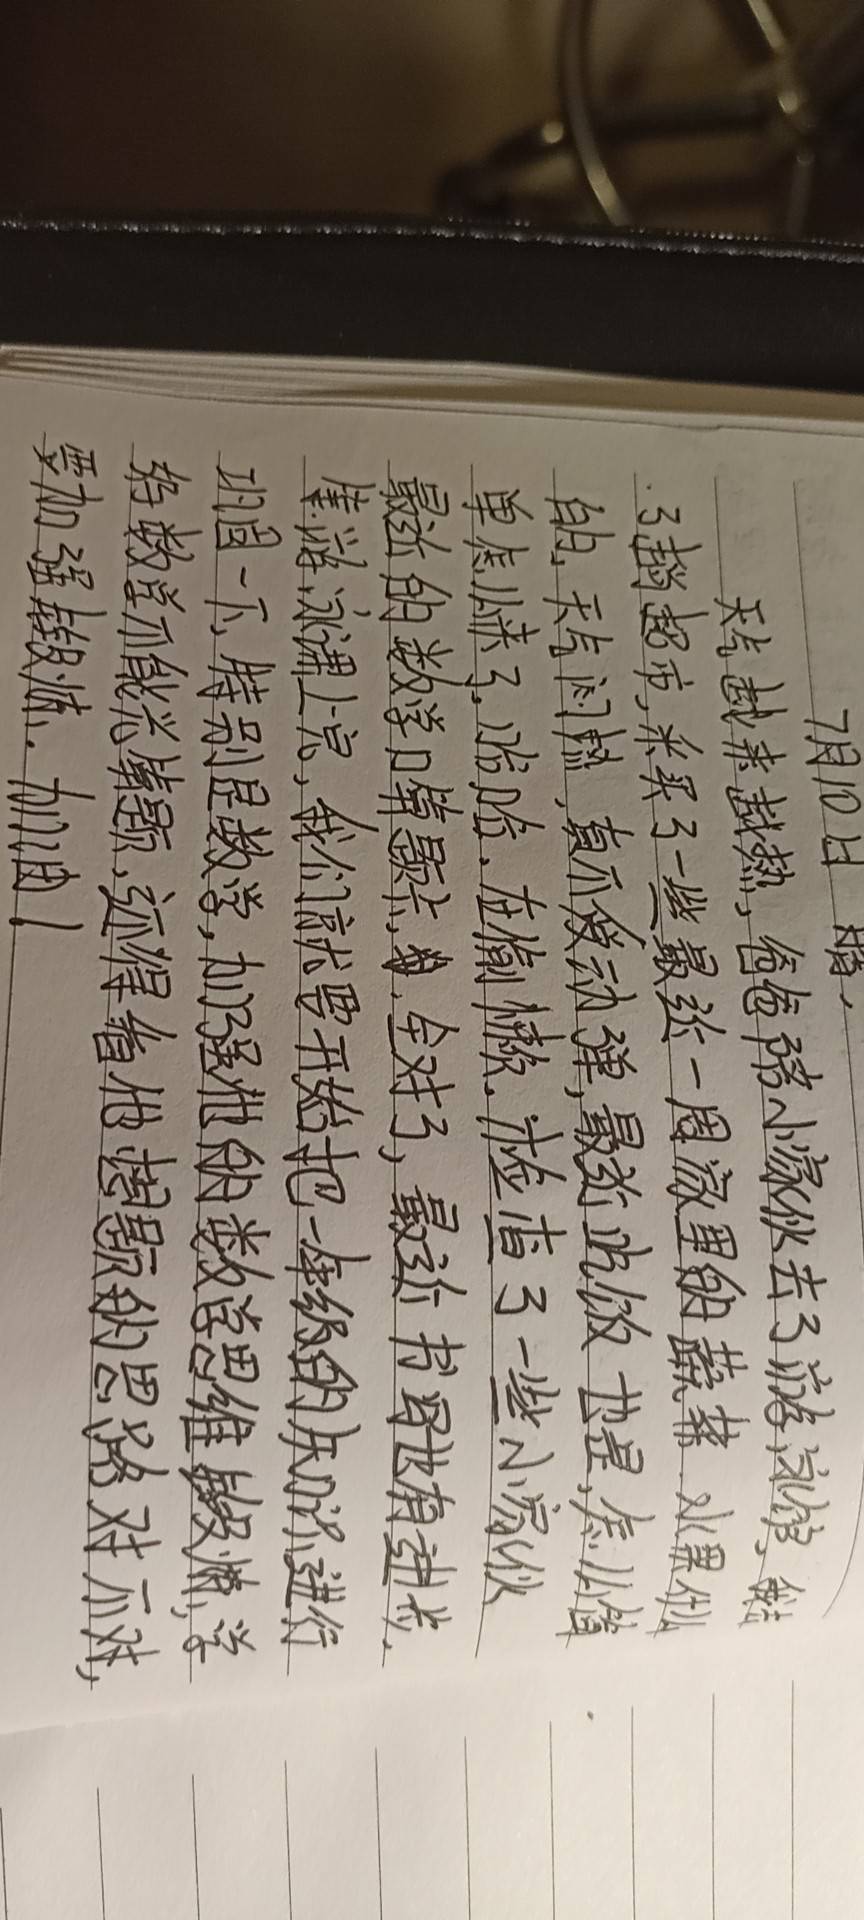 7月10日 晴、
天气越来越热，爸爸陪小家伙去了游泳馆，我去
了趟超市，采买了一些最近一周家里的蔬菜、水果什么
的，天气闷热，真不爱动弹，最近吃饭也是，怎么简
单怎么来了，哈哈，在偷懒。检查了一些小家伙
最近的数学口算题卡，全对了，最近书写也有进步，
等游泳课上完，我们就要开始把一年级的知识进行
巩固一下，特别是数学，加强他的数学思维锻炼，学
好数学不能光算题，还得看他读题的思路对不对，
要加强锻炼。加油！